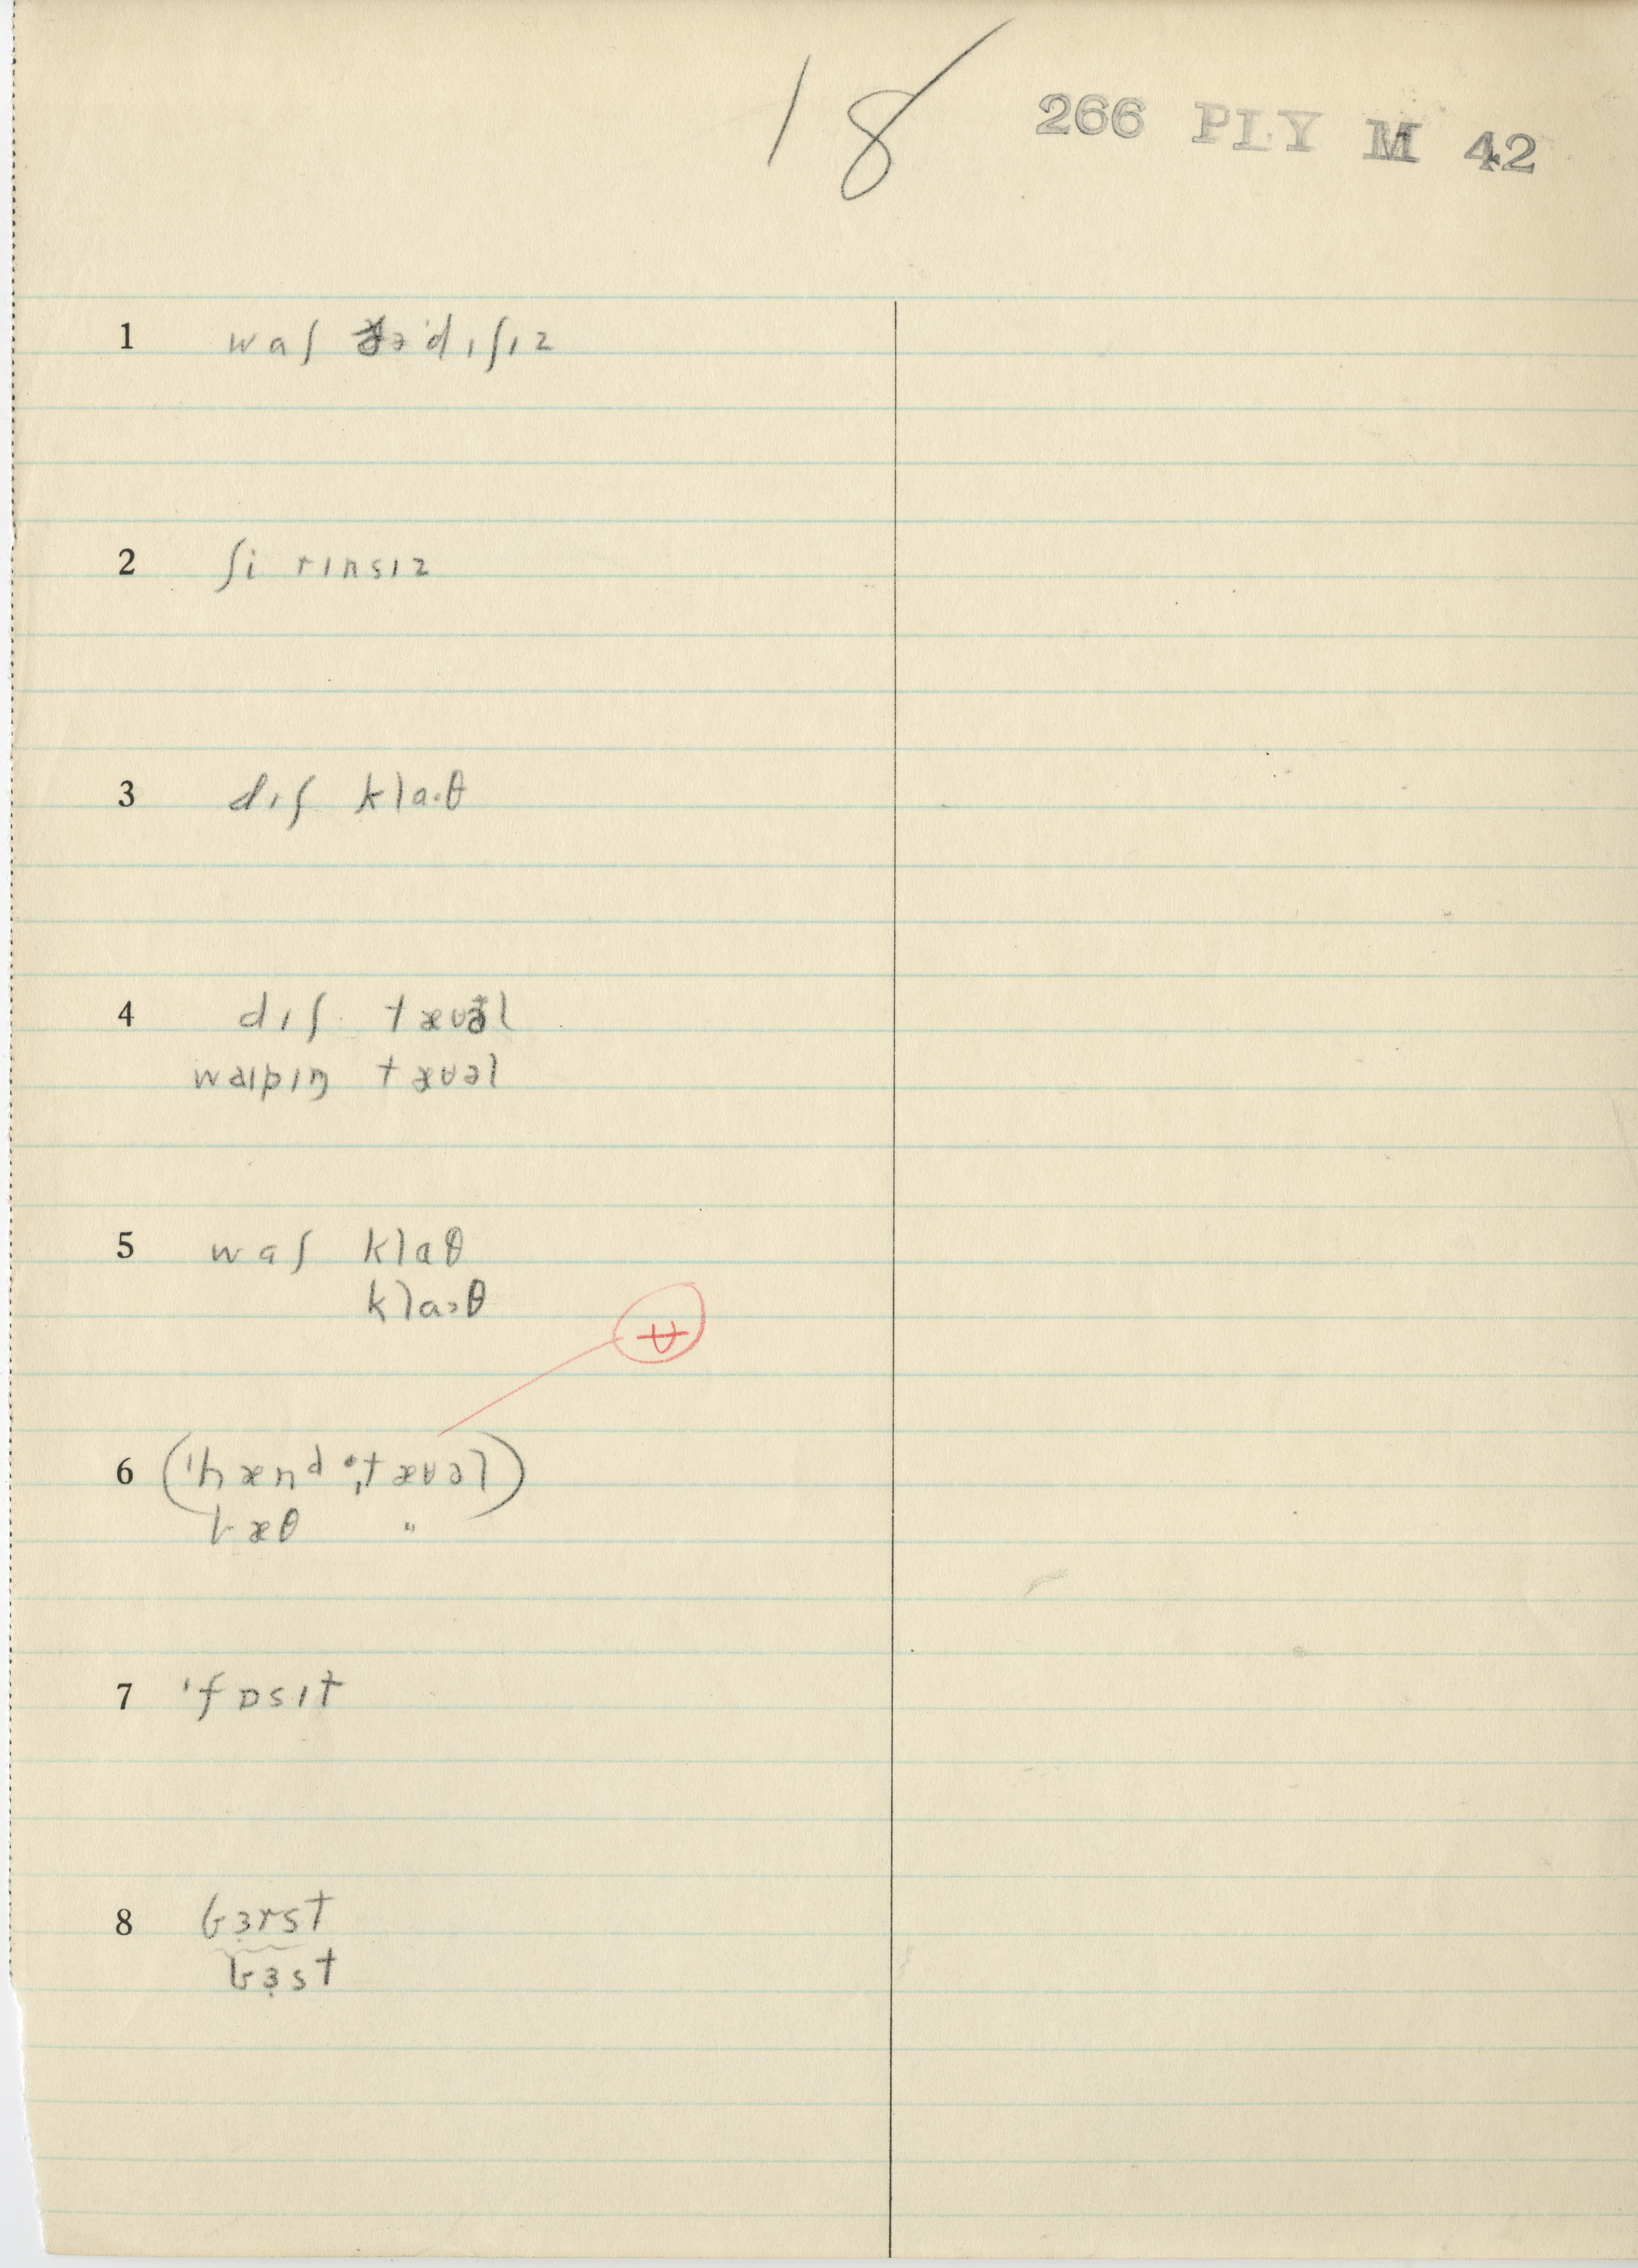 18 266 PLY M 42
1 waʃ ðə ˈdɪʃɪz
2 ʃi rɪnsɪz
3 dɪʃ kla·θ
4 dɪʃ tæʊəl
waɪpɪŋ tæʊəl
5 waʃ klaθ
klaɔθ
ʉ
6 (ˈhænd ˌtæʊəl)
bæθ "
7 ˈfɒsɪt
8 bɜrst
bɜst